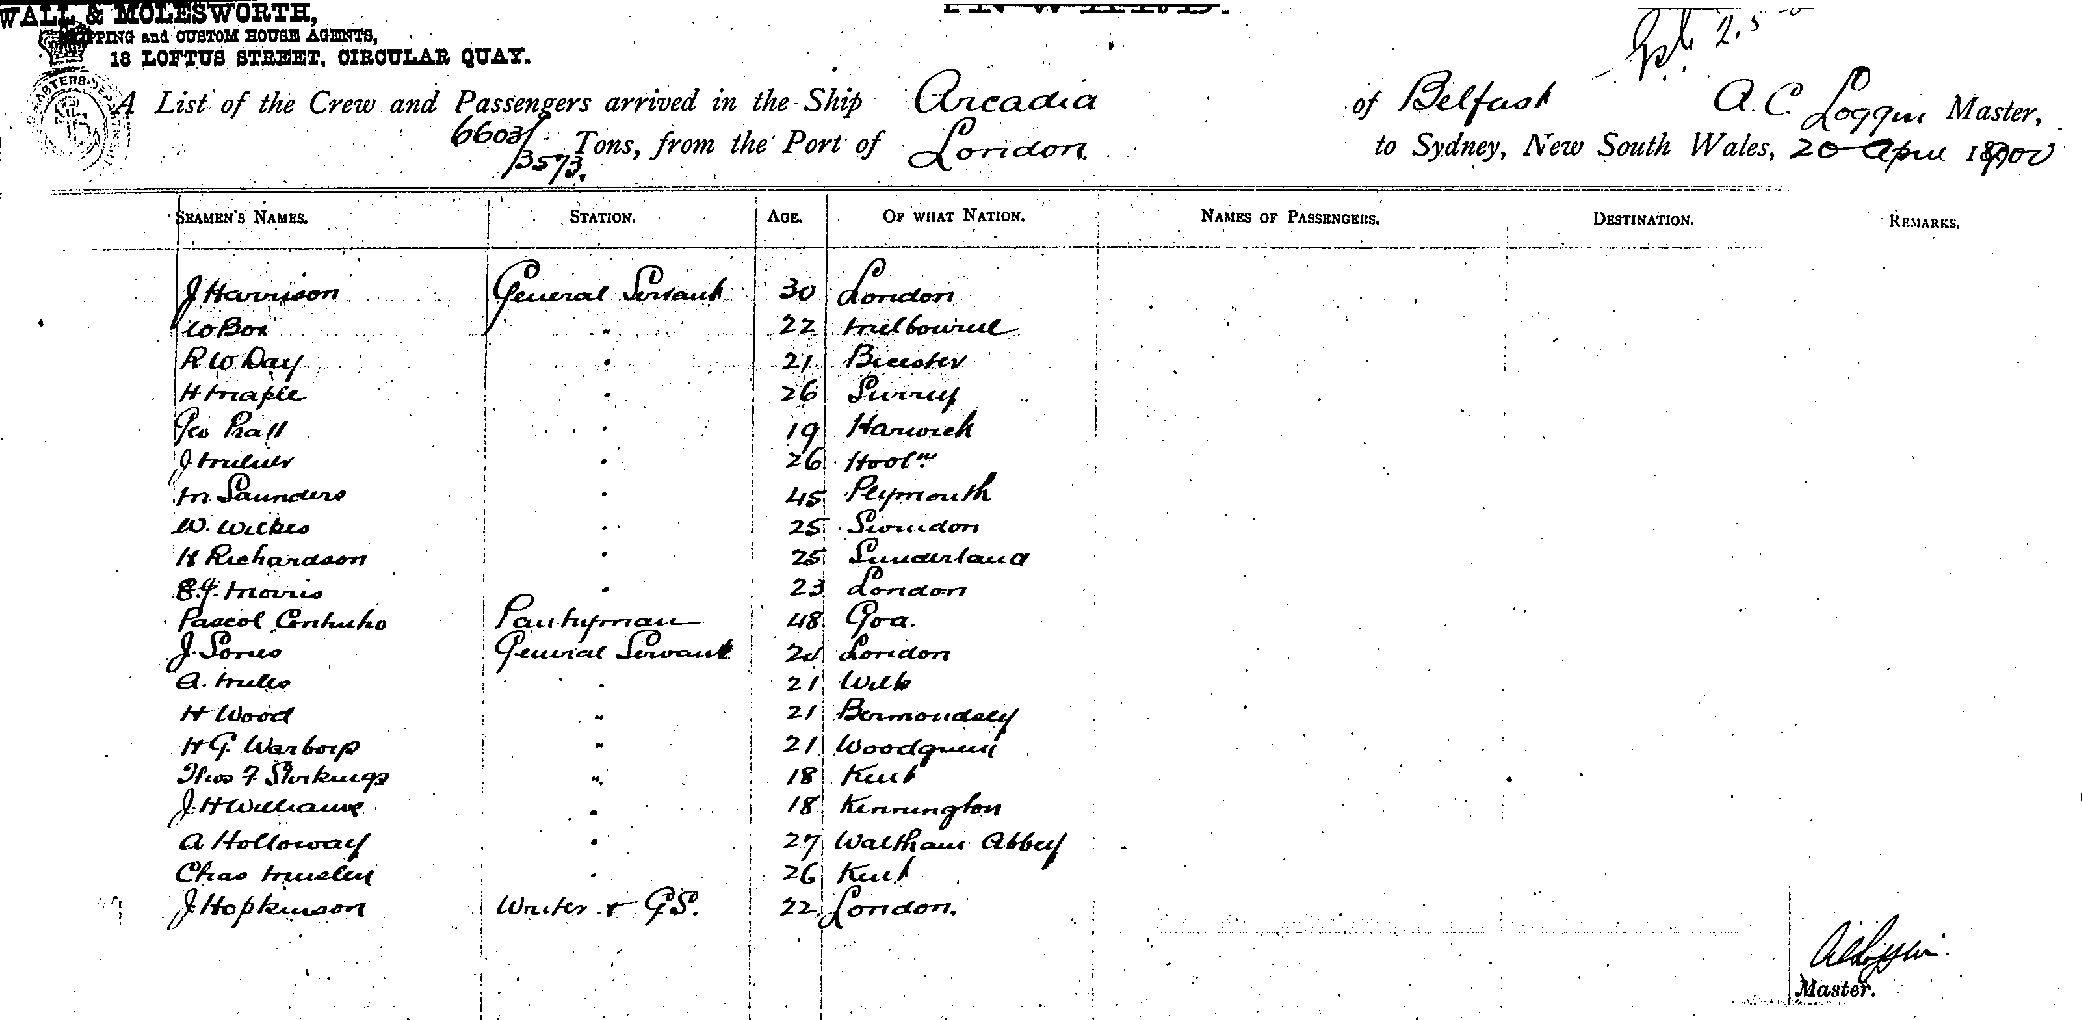 WALL & MOLESWORTH,
SHIPPING and CUSTOM HOUSE AGENTS,
18 LOFTUS STREET, CIRCULAR QUAY.
A List of the Crew and Passengers arrived in the Ship Arcadia of Belfast A. C. Loggin Master,
6603/3573. Tons, from the Port of London to Sydney, New South Wales, 20 April 1900
SEAMEN'S NAMES. STATION. AGE. OF WHAT NATION. NAMES OF PASSENGERS. DESTINATION. REMARKS.
J Harrison General Servant 30 London
W Box " 22 Melbourne
R W Day " 21 Bicester
H Maple " 26 Surrey
Geo Pratt " 19 Harwich
J " 26
M Saunders " 45 Plymouth
W. Wilkes " 25 Swindon
H Richardson " 25 Sunderland
Morris " 23 London
Pascol Continho Pantryman 48 Goa.
J. General Servant London
A. Mills " 21 Wilts
H Wood " 21 Bermondsey
H G. " 21 Woodgreen
Thos F Stockings " 18 Kent
J. H Williams " 18 Kennington
A Holloway " 27 Waltham Abbey
Chas " 26 Kent
J Hopkinson Writer & GS. 22 London.
Master.